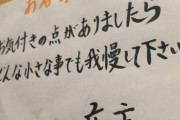 お気付きの点がありましたら
どんな小さな事でも我慢して下さい